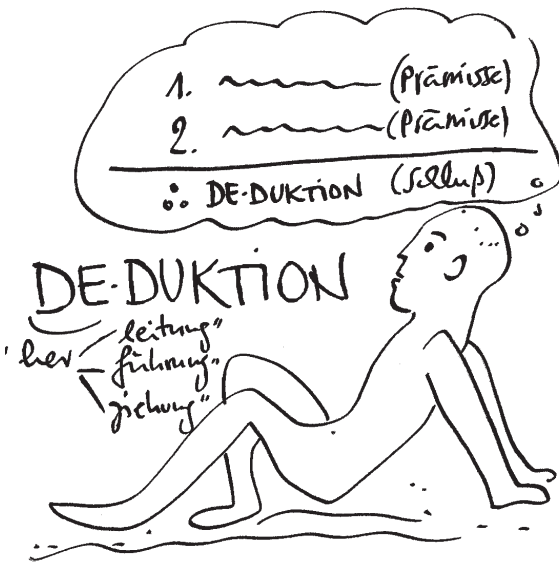 1. (Prämisse)
2. (Prämisse)
∴ DE-DUKTION (Schluß)
DE-DUKTION
"her leitung"
führung"
ziehung"